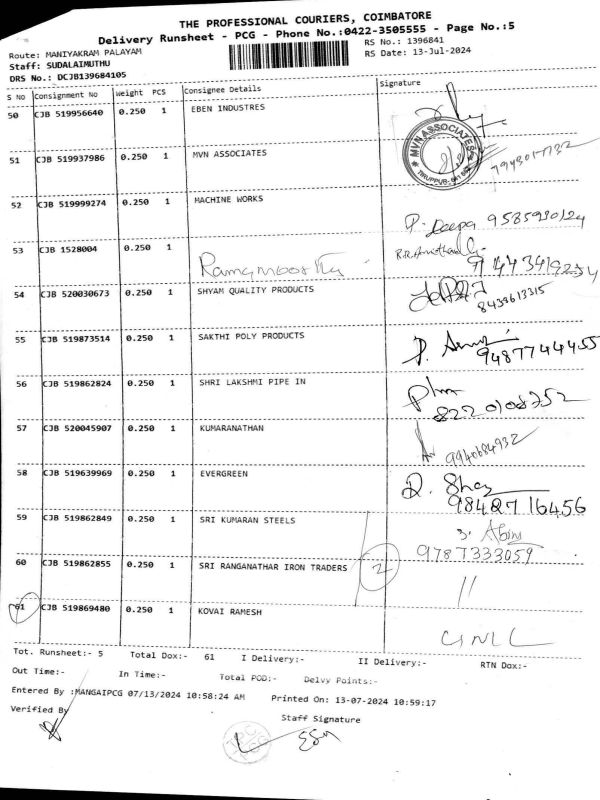 THE PROFESSIONAL COURIERS, COIMBATORE
Delivery Runsheet - PCG - Phone No.:0422-3505555 - Page No.:5
Route: MANIYAKRAM PALAYAM
RS No.: 1396841
Staff: SUDALAIMUTHU
RS Date: 13-Jul-2024
DRS No.: DCJB139684105
S No Consignment No Weight PCS Consignee Details Signature
50 CJB 519956640 0.250 1 EBEN INDUSTRES
51 CJB 519937986 0.250 1 MVN ASSOCIATES
MVN ASSOCIATES
52 CJB 519999274 0.250 1 MACHINE WORKS
P. Deepa
53 CJB 1528004 0.250 1
54 CJB 520030673 0.250 1 SHYAM QUALITY PRODUCTS
8439613315
55 CJB 519873514 0.250 1 SAKTHI POLY PRODUCTS
9487744455
56 CJB 519862824 0.250 1 SHRI LAKSHMI PIPE IN
8220108752
57 CJB 520045907 0.250 1 KUMARANATHAN
9940684932
58 CJB 519639969 0.250 1 EVERGREEN
9842716456
59 CJB 519862849 0.250 1 SRI KUMARAN STEELS
9787333059
60 CJB 519862855 0.250 1 SRI RANGANATHAR IRON TRADERS 2 11
61 CJB 519869480 0.250 1 KOVAI RAMESH
Tot. Runsheet:- 5 Total Dox:- 61 I Delivery:- II Delivery:- RTN Dox:-
Out Time:- In Time:- Total POD:- Delvy Points:-
Entered By :MANGAIPCG 07/13/2024 10:58:24 AM Printed On: 13-07-2024 10:59:17
Verified By
Staff Signature